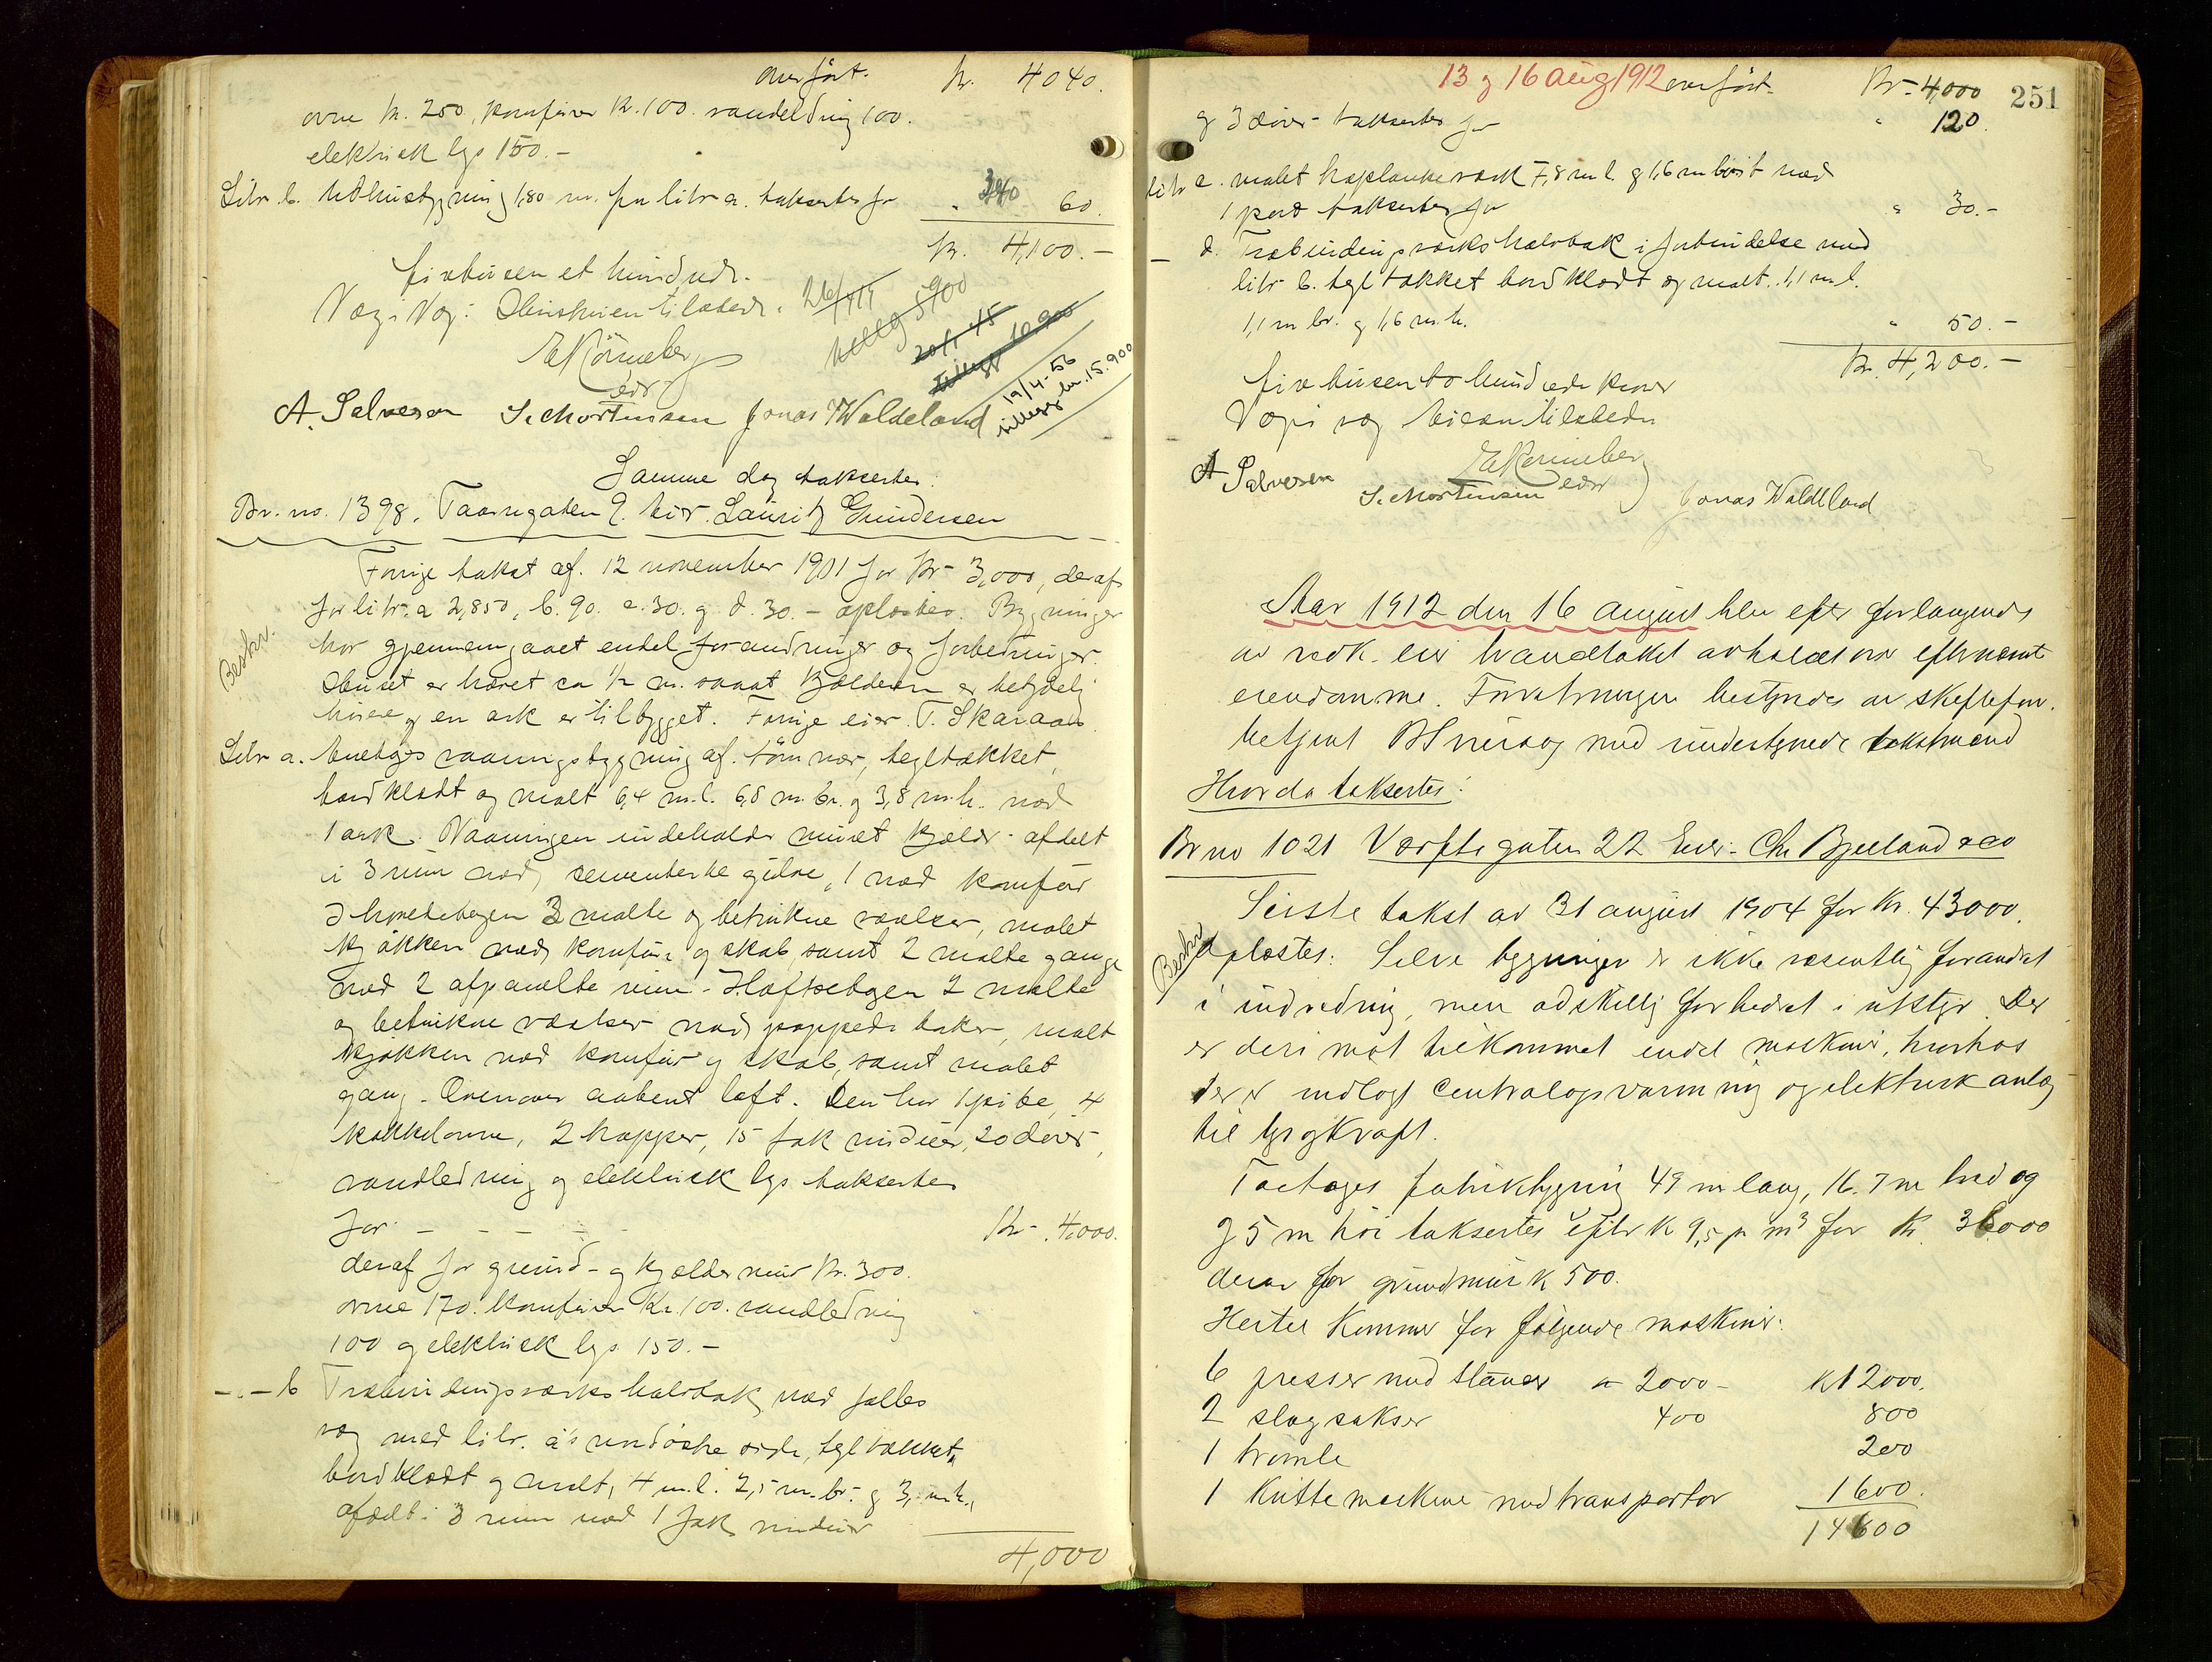 overført. Kr. 4040.
ovne kr. 250, komfurer kr. 100. vandledning 100.
elektrisk lys 150.-
Litr. b. Udhusbygning 1,80 m. fra litr a. taksertes for " 60.
Kr. 4,100.-
firetusen et hundrede.
Væg i Væg: tilstede. 26/4 19
tillegg 5900
20/1 45
Tillegg 10.900
19/4-56
tillegg kr. 15.900
EKönneberg
edr
A. Salvesen S. Mortensen Jonas Waldeland
Samme dag taksertes:
Br. no. 1398. Taarngaten 9. eier. Lauritz Gundersen
Forrige takst af. 12 november 1901 for Kr- 3,000, deraf
for litr. a 2,850, b. 90. c. 30. g d. 30.- oplæstes. Bygninger
Beskr.
har gjennemgaaet endel forandringer og forbedringer.
Huset er hævet ca 1/2 m. samt kjælderen er betydelig
høiere og en ark er tilbygget. Forrige eier. T. Skaraas
Litr a. Enetages vaaningsbygning af. tømmer, tegltækket,
bordklædt og malt 6,4 m.l. 6,8 m. br. g 3,8 m.h. med
1 ark. Vaaningen indeholder muret kjælder - afdelt
i 3 rum med, sementerte gulve, 1 med komfur
I hovedetagen 3 malte og betrukne værelser, malet
kjøkken med komfur og skab, samt 2 malte gange
med 2 afpanelte rum - Loftsetagen 2 malte
og betrukne værelser med pappede taker, malt
kjøkken med komfur g skab, samt malet
gang. Ovenover aabent loft. Den har 1 pibe, 4
kakkelovne, 2 trapper, 15 fak vinduer, 20 dører,
vandledning og elektrisk lys taksertes
for - - - - - Kr- 4,000.
deraf for grund- og kjældermur Kr. 300.
ovne 170. komfurer Kr. 100. vandledning
100 og elektrisk lys 150.-
-"- b Træbindingsværks halvtak med fælles
væg med litr. a's side, tegltækket,
bordklædt og malt, 4 m.l. 2,5 m. br. g 3, m.h.,
afdelt i 3 rum med 1 fak vinduer
4,000
13 g 16 aug 1912 overført. Kr- 4,000 251
g 3 dører - taksertes for " 120.
litr c. malet haplankeværk 7,8 m l. g 1,6 m høit med
1 port taksertes for " 30.-
- d. Træbindingsværks halvtak i forbindelse med
litr b. tegltækket bordklædt og malt. 1,1 m l.
1,1 m br. g 1,6 m.h. " 50.-
Kr. 4,200.-
fire tusen to hundrede kroner
Væg i væg tilstede
EKönneberg
edr
A Salvesen S. Mortensen Jonas Waldeland
Aar 1912 den 16 august blev efter forlangende
av vedk. eier brandtakst avholdt over efternevnte
eiendomme. Forretningen bestyredes av skiftefor.
betjent med undertegnede takstmænd
Hvorda taksertes:
Br no 1021 Værftsgaten 22 Eier. Chr Bjelland & co
Sidste takst av 31 august 1904 for Kr. 43000.
Beskr
oplæstes. Selve bygningen er ikke væsentlig forandret
i indredning, men adskillig forbedret i utstyr. Der
er derimot tilkommet endel maskiner, hvorhos
der er indlagt centralopvarmning og elektrisk anlæg
til lys og kraft.
Toetages fabrikbygning 49 m lang, 16.7 m bred og
g 5 m høi taksertes efter k 9,5 pr m³ for Kr. 36000
derav for grundmur k 500.
Hertil kommer for følgende maskiner:
6 presser med stanser a 2000 - k 12000.
2 slagsakser 400 800
1 tromle 200
1 kittemaskine med transportør 1600.
14600